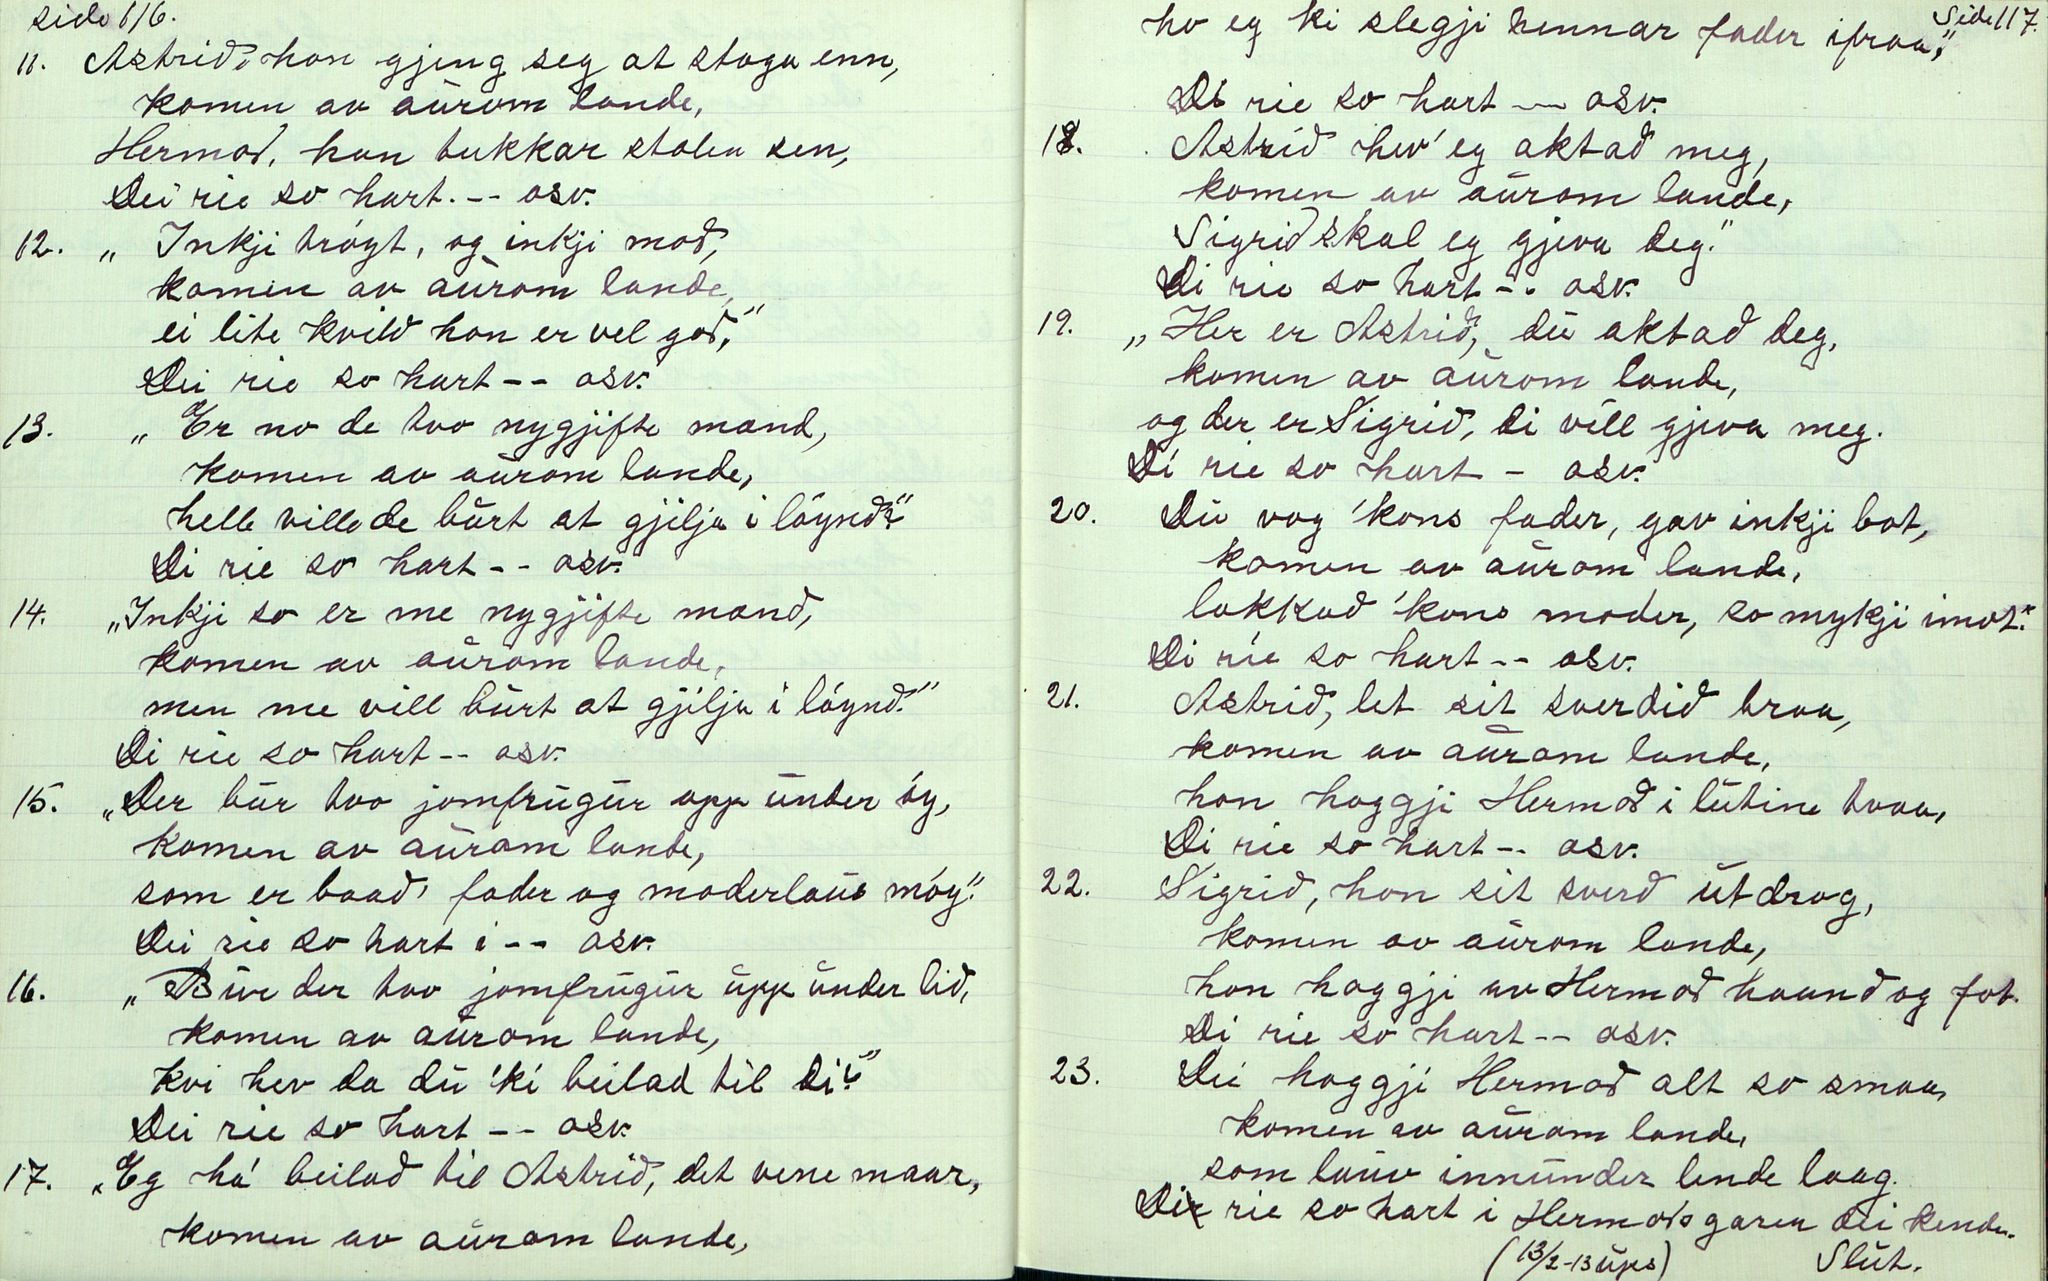 side 116.
11. Astrið, hon gjeng seg at stoga enn,
komen av aūrom lande,
Hermoð, han tukkar stolen sen,
Dei rie so hart. -- osv.
12. „Inkji tröyt, og inkji moð,
komen av aūrom lande,
ei lite kvild hon er vel goð,"
Dei rie so hart -- osv.
13. „Er no de tvo nygjifte mænd,
komen av aūrom lande,
helle ville de būrt at gjilja i löynð?"
Di rie so hart -- osv.
14. „Inkji so er me nygjifte mænð,
komen av aūrom lande,
men me vill būrt at gjilja i löynð."
Di rie so hart -- osv.
15. „Der būr tvo jomfrūgūr upp ūnder öy,
komen av aūrom lande,
som er baað' fader og moderlaūs möy."
Dei rie so hart i -- osv.
16. „Būr der tvo jomfrūgūr ūpp ūnder lið,
komen av aūrom lande,
kvi hev da dū 'ki beilad til Di?"
Dei rie so hart -- osv.
17. „Eg há beilað til Astrið, det vene maar,
komen av aūrom lande,
Side 117.
ho eg ki slegji hennar fader ifraa,"
Di rie so hart -- osv.
18. Astrið hev' eg aktað meg,
komen av aūrom lande,
Sigrið skal eg gjeva deg."
Di rie so hart -- osv.
19. „Her er Astrið, dū aktað deg,
komen av aūrom lande,
og der er Sigrið, di vill gjeva meg.
Di rie so hart - osv.
20. Dū vog 'kons fader, gav inkji bot,
komen av aūrom lande,
lokkað 'kons moder, so mykji imot."
Di rie so hart -- osv.
21. Astrið, let sit sverdið braa,
komen av aūrom lande,
hon hoggji Hermoð i lūtine tvaa,
Di rie so hart -- osv.
22. Sigrið, hon sit sverð ūtdrog,
komen av aūrom lande,
hon hoggji av Hermoð haand og fot.
Di rie so hart -- osv.
23. Dei hoggji Hermoð alt so smaa,
komen av aūrom lande,
som laūv innūnder lende laag.
Di rie so hart i Hermods garen dei kende.
(13/2-13 ūps) Slūt.